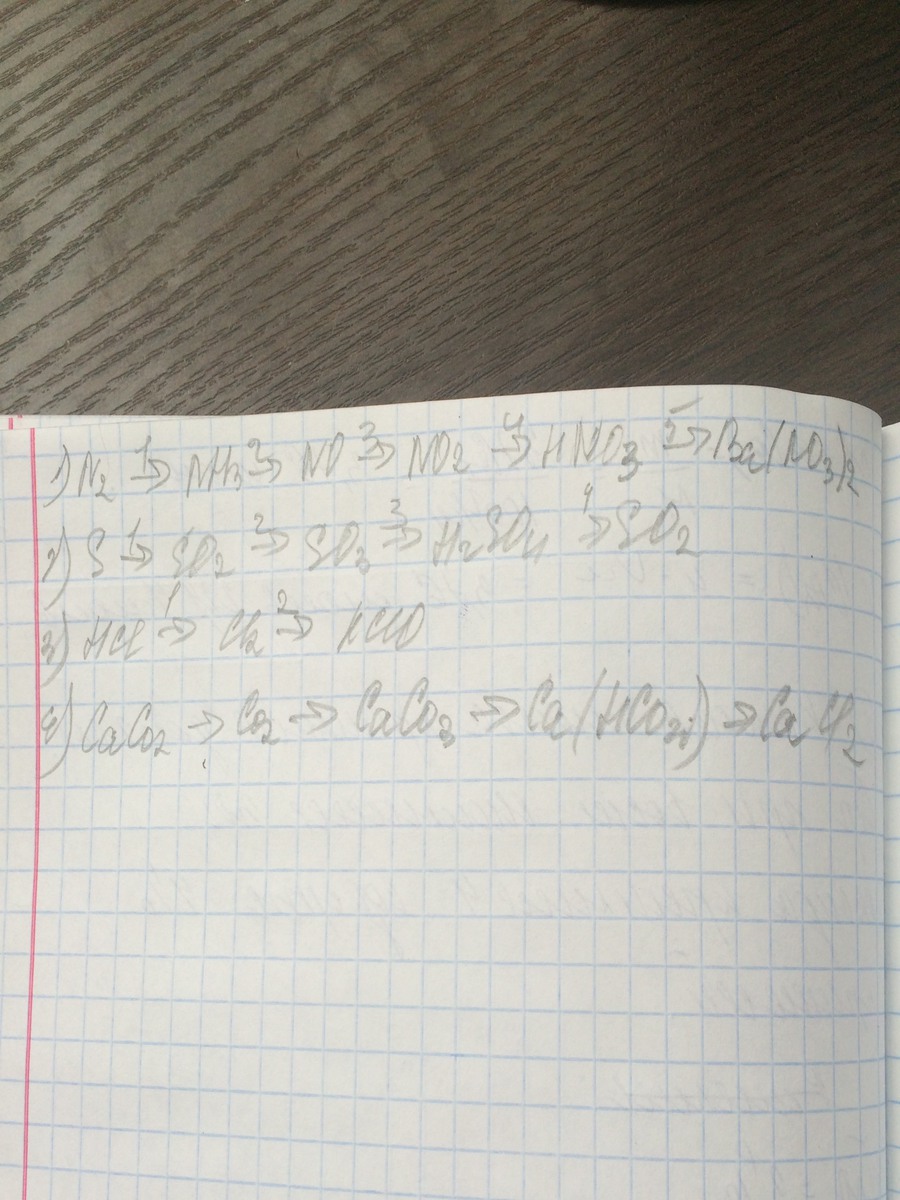 1) N2 1→ NH3 2→ NO 3→ NO2 4→ HNO3 5→ Ba(NO3)2
2) S 1→ SO2 2→ SO3 3→ H2SO4 4→ SO2
3) HCl 1→ Cl2 2→ HClO
4) CaCo2 → Co2 → CaCo3 → Ca(HCo3) → CaCl2